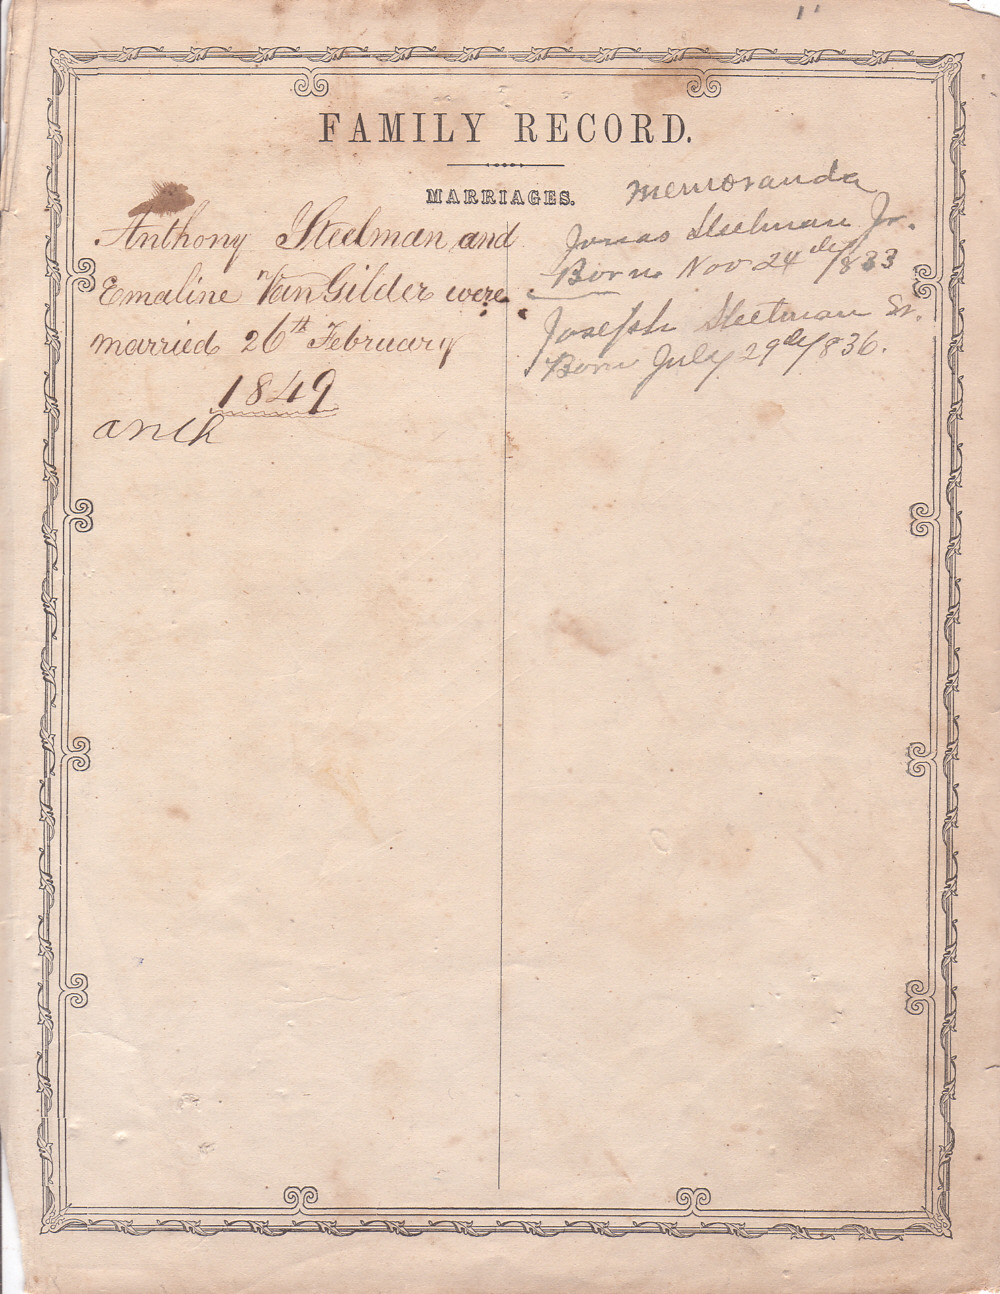 FAMILY RECORD.
MARRIAGES.
Anthony Steelman and
Emaline VanGilder were
married 26th February
1849
anth
Memoranda
Jonas Steelman Jr.
Born Nov 24th 1833
Joseph Steelman Sr.
Born July 29th 1836.